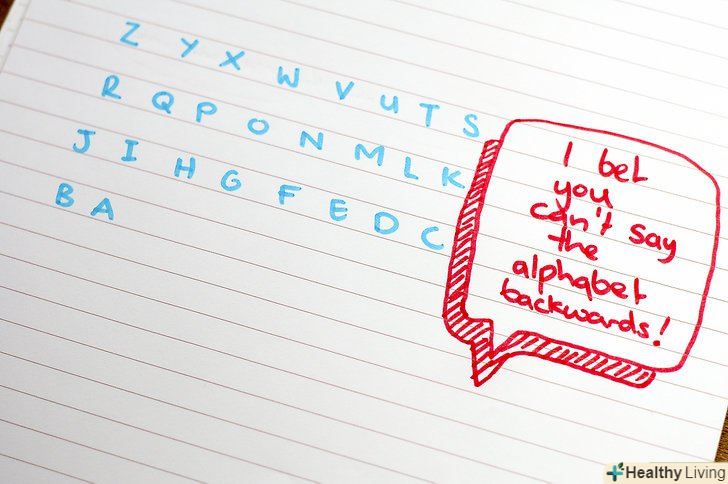 Z Y X W V U T S
R Q P O N M L K
J I H G F E D C
B A
I bet
you
can't say
the
alphabet
backwards!
Healthy Living